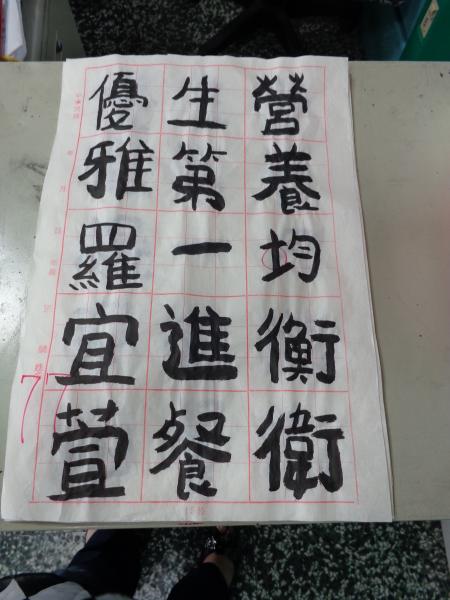 營養均衡衛
生第一進餐
優雅羅宜萱
77